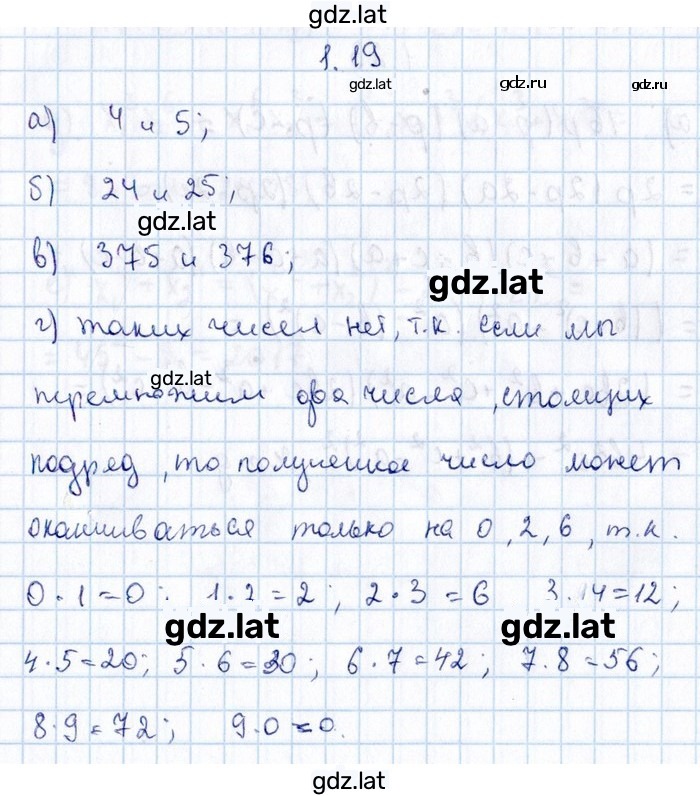 gdz.lat
1.19
gdz.lat
gdz.ru
gdz.ru
а) 4 и 5;
б) 24 и 25;
gdz.lat
в) 375 и 376;
gdz.lat
г) таких чисел нет, т.к. если мы
gdz.lat
перемножим два числа, стоящих
подряд, то полученное число может
оканчиваться только на 0, 2, 6, т.к.
0 · 1 = 0; 1 · 2 = 2; 2 · 3 = 6 3 · 4 = 12;
gdz.lat
gdz.lat
4 · 5 = 20; 5 · 6 = 30; 6 · 7 = 42; 7 · 8 = 56;
8 · 9 = 72; 9 · 0 = 0.
gdz.lat